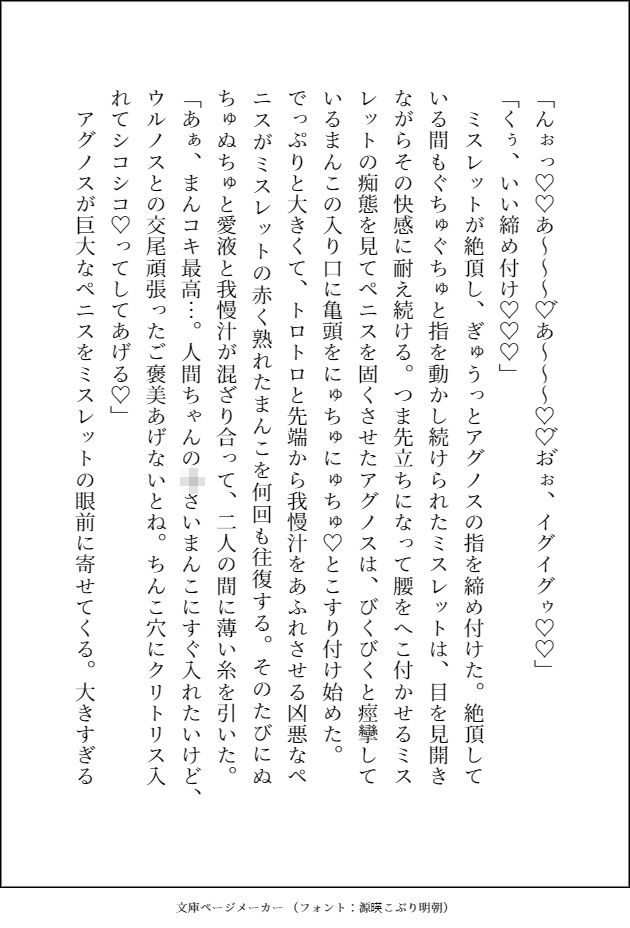 「んぉっ♡♡あ～～～♡゙あ～～～♡♡゙お゙ぉ、イグイグゥ♡♡」
「くぅ、いい締め付け♡♡♡」
　ミスレットが絶頂し、ぎゅうっとアグノスの指を締め付けた。絶頂して
いる間もぐちゅぐちゅと指を動かし続けられたミスレットは、目を見開き
ながらその快感に耐え続ける。つま先立ちになって腰をへこ付かせるミス
レットの痴態を見てペニスを固くさせたアグノスは、びくびくと痙攣して
いるまんこの入り口に亀頭をにゅちゅにゅちゅ♡とこすり付け始めた。
でっぷりと大きくて、トロトロと先端から我慢汁をあふれさせる凶悪なペ
ニスがミスレットの赤く熟れたまんこを何回も往復する。そのたびにぬ
ちゅぬちゅと愛液と我慢汁が混ざり合って、二人の間に薄い糸を引いた。
「あぁ、まんコキ最高…。人間ちゃんのさいまんこにすぐ入れたいけど、
ウルノスとの交尾頑張ったご褒美あげないとね。ちんこ穴にクリトリス入
れてシコシコ♡ってしてあげる♡」
　アグノスが巨大なペニスをミスレットの眼前に寄せてくる。大きすぎる
文庫ページメーカー （フォント：源暎こぶり明朝）